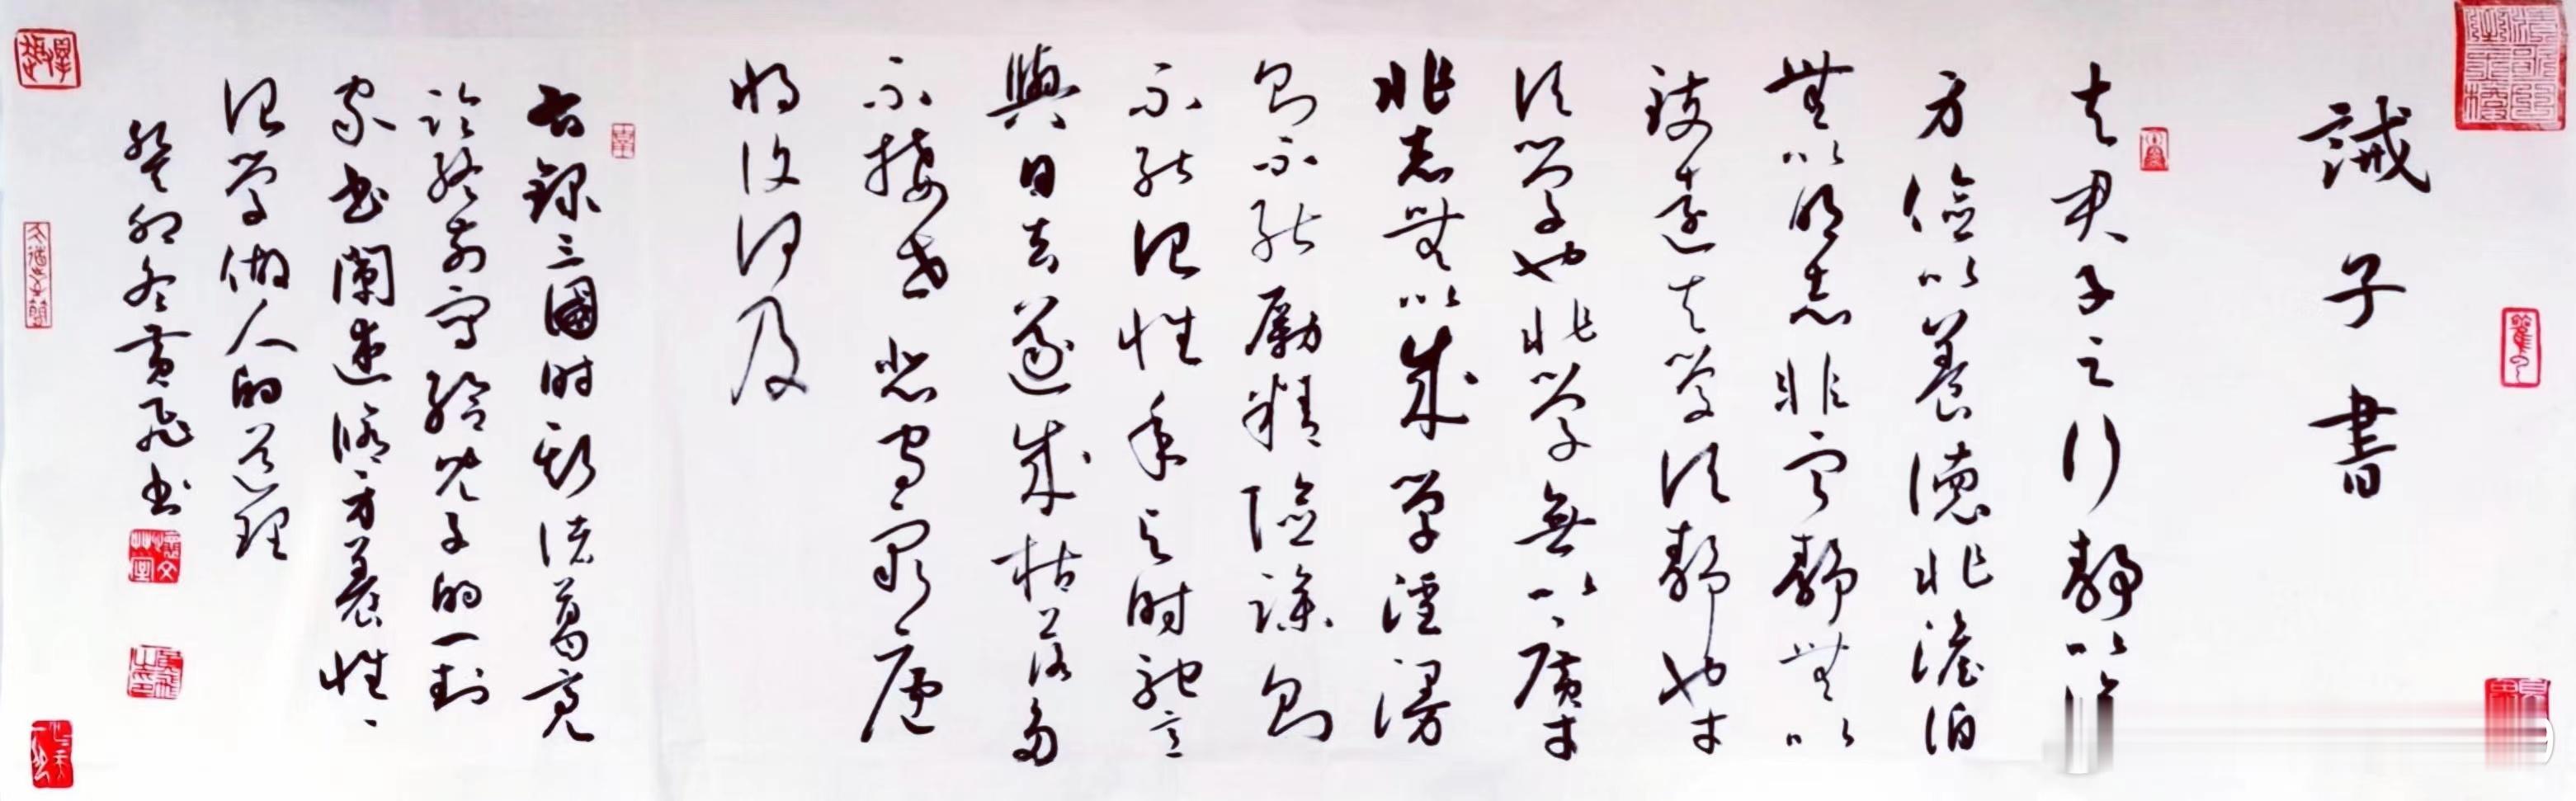 誡子書
夫君子之行靜以
身儉以養德非澹泊
無以明志非寧靜無以
致遠夫學須靜也才
須學也非學無以廣才
非志無以成學淫漫
則不能勵精險躁則
不能治性年与时馳意
與日去遂成枯落多
不接世悲守窮廬
將復何及
右錄三國时期诸葛亮
临终前写给儿子的一封
家书闡述修身養性、
治學做人的道理
癸卯冬黄飛书